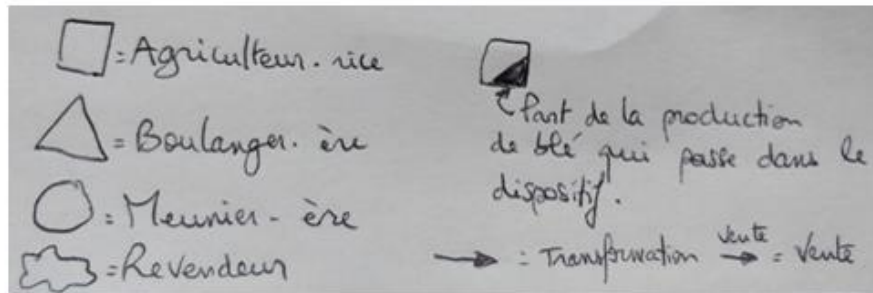 = Agriculteur.rice
= Boulanger.ère
= Meunier-ère
= Revendeur
Part de la production
de blé qui passe dans le
dispositif.
= Transformation vente = vente